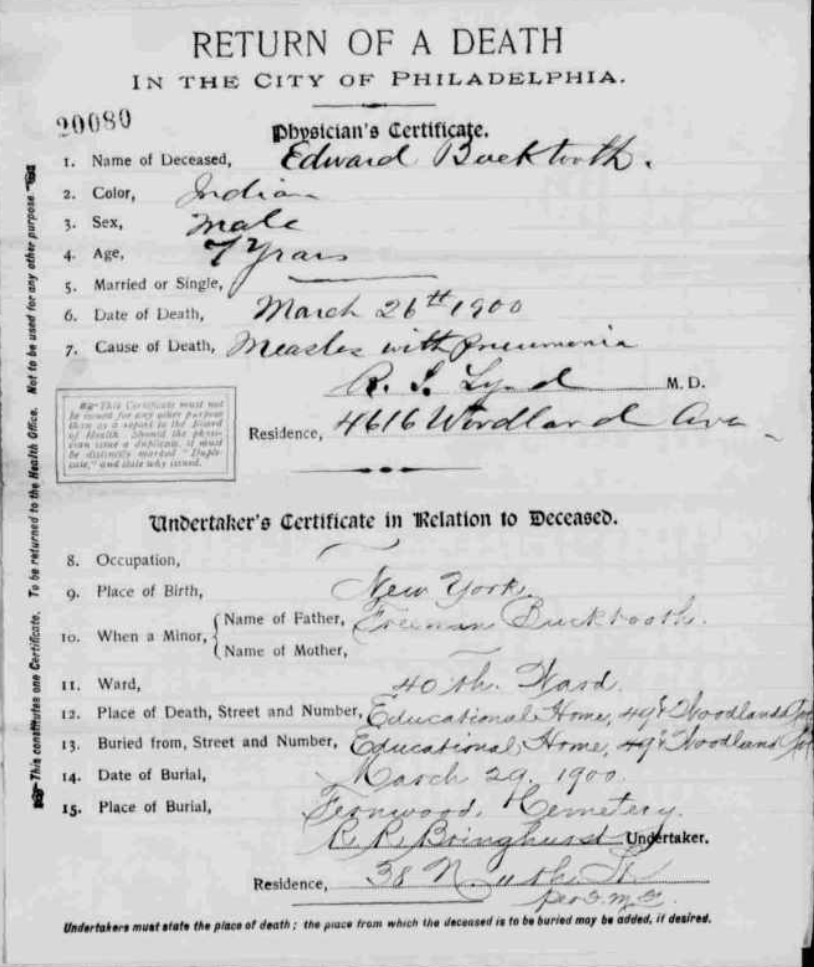 RETURN OF A DEATH
IN THE CITY OF PHILADELPHIA.
20080
Physician's Certificate.
1. Name of Deceased, Edward Bucktooth.
2. Color, Indian
3. Sex, Male
4. Age, 7 Years
5. Married or Single,
6. Date of Death, March 26th 1900
7. Cause of Death, Measles with Pneumonia
R. S. Lynd M. D.
Residence, 4616 Woodland Ave
This Certificate must not
be issued for any other purpose
than as a report to the Board
of Health. Should the physi-
cian issue a duplicate, it must
be distinctly marked "Dupli-
cate," and state why issued.
Undertaker's Certificate in Relation to Deceased.
8. Occupation,
9. Place of Birth, New York.
10. When a Minor, Name of Father, Freeman Bucktooth.
Name of Mother,
11. Ward, 40th. Ward.
12. Place of Death, Street and Number, Educational Home, 49 & Woodland
13. Buried from, Street and Number, Educational Home, 49 & Woodland
14. Date of Burial, March 29. 1900.
15. Place of Burial, Fernwood. Cemetery.
R. R. Bringhurst Undertaker.
Residence, 38 N. 11th. St
per
Undertakers must state the place of death; the place from which the deceased is to be buried may be added, if desired.
This constitutes one Certificate. To be returned to the Health Office. Not to be used for any other purpose.